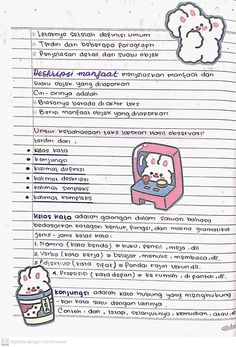 Letaknya setelah definisi umum
Terdiri dari beberapa paragraph
Penjelasan detail dari suatu objek
Deskripsi manfaat menjelaskan manfaat dari
suatu objek yang dilaporkan
Ciri-cirinya adalah
Biasanya berada di akhir teks
Berisi manfaat objek yang dilaporkan
Unsur kebahasaan teks laporan hasil observasi
terdiri dari :
kelas kata
konjungsi
kalimat definisi
kalimat deskripsi
kalimat simpleks
kalimat kompleks
Kelas kata adalah golongan dalam satuan bahasa
berdasarkan kategori bentuk, fungsi, dan makna gramatikal
jenis-jenis kelas kata:
1. Nomina (kata benda) buku, pensil, meja, dll.
2. Verba (kata kerja) belajar, menulis, membaca, dll.
3. Adjektiva (kata sifat) Pandai rajin tekun dll.
4. Preposisi (kata depan) ke rumah, di pantai, dll.
Konjungsi adalah kata hubung yang menghubung
-kan kata satu dengan lainnya
Contoh : dan, tetapi, selanjutnya, kemudian, atau, dll
CS Dipindai dengan CamScanner